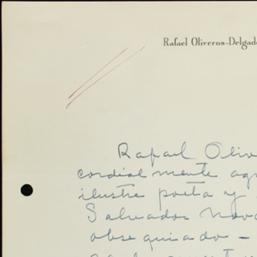 Rafael Oliveros-Delgad
Rafael Olive
cordialmente agr
ilustre poeta y
Salvador Novo
obsequiado -